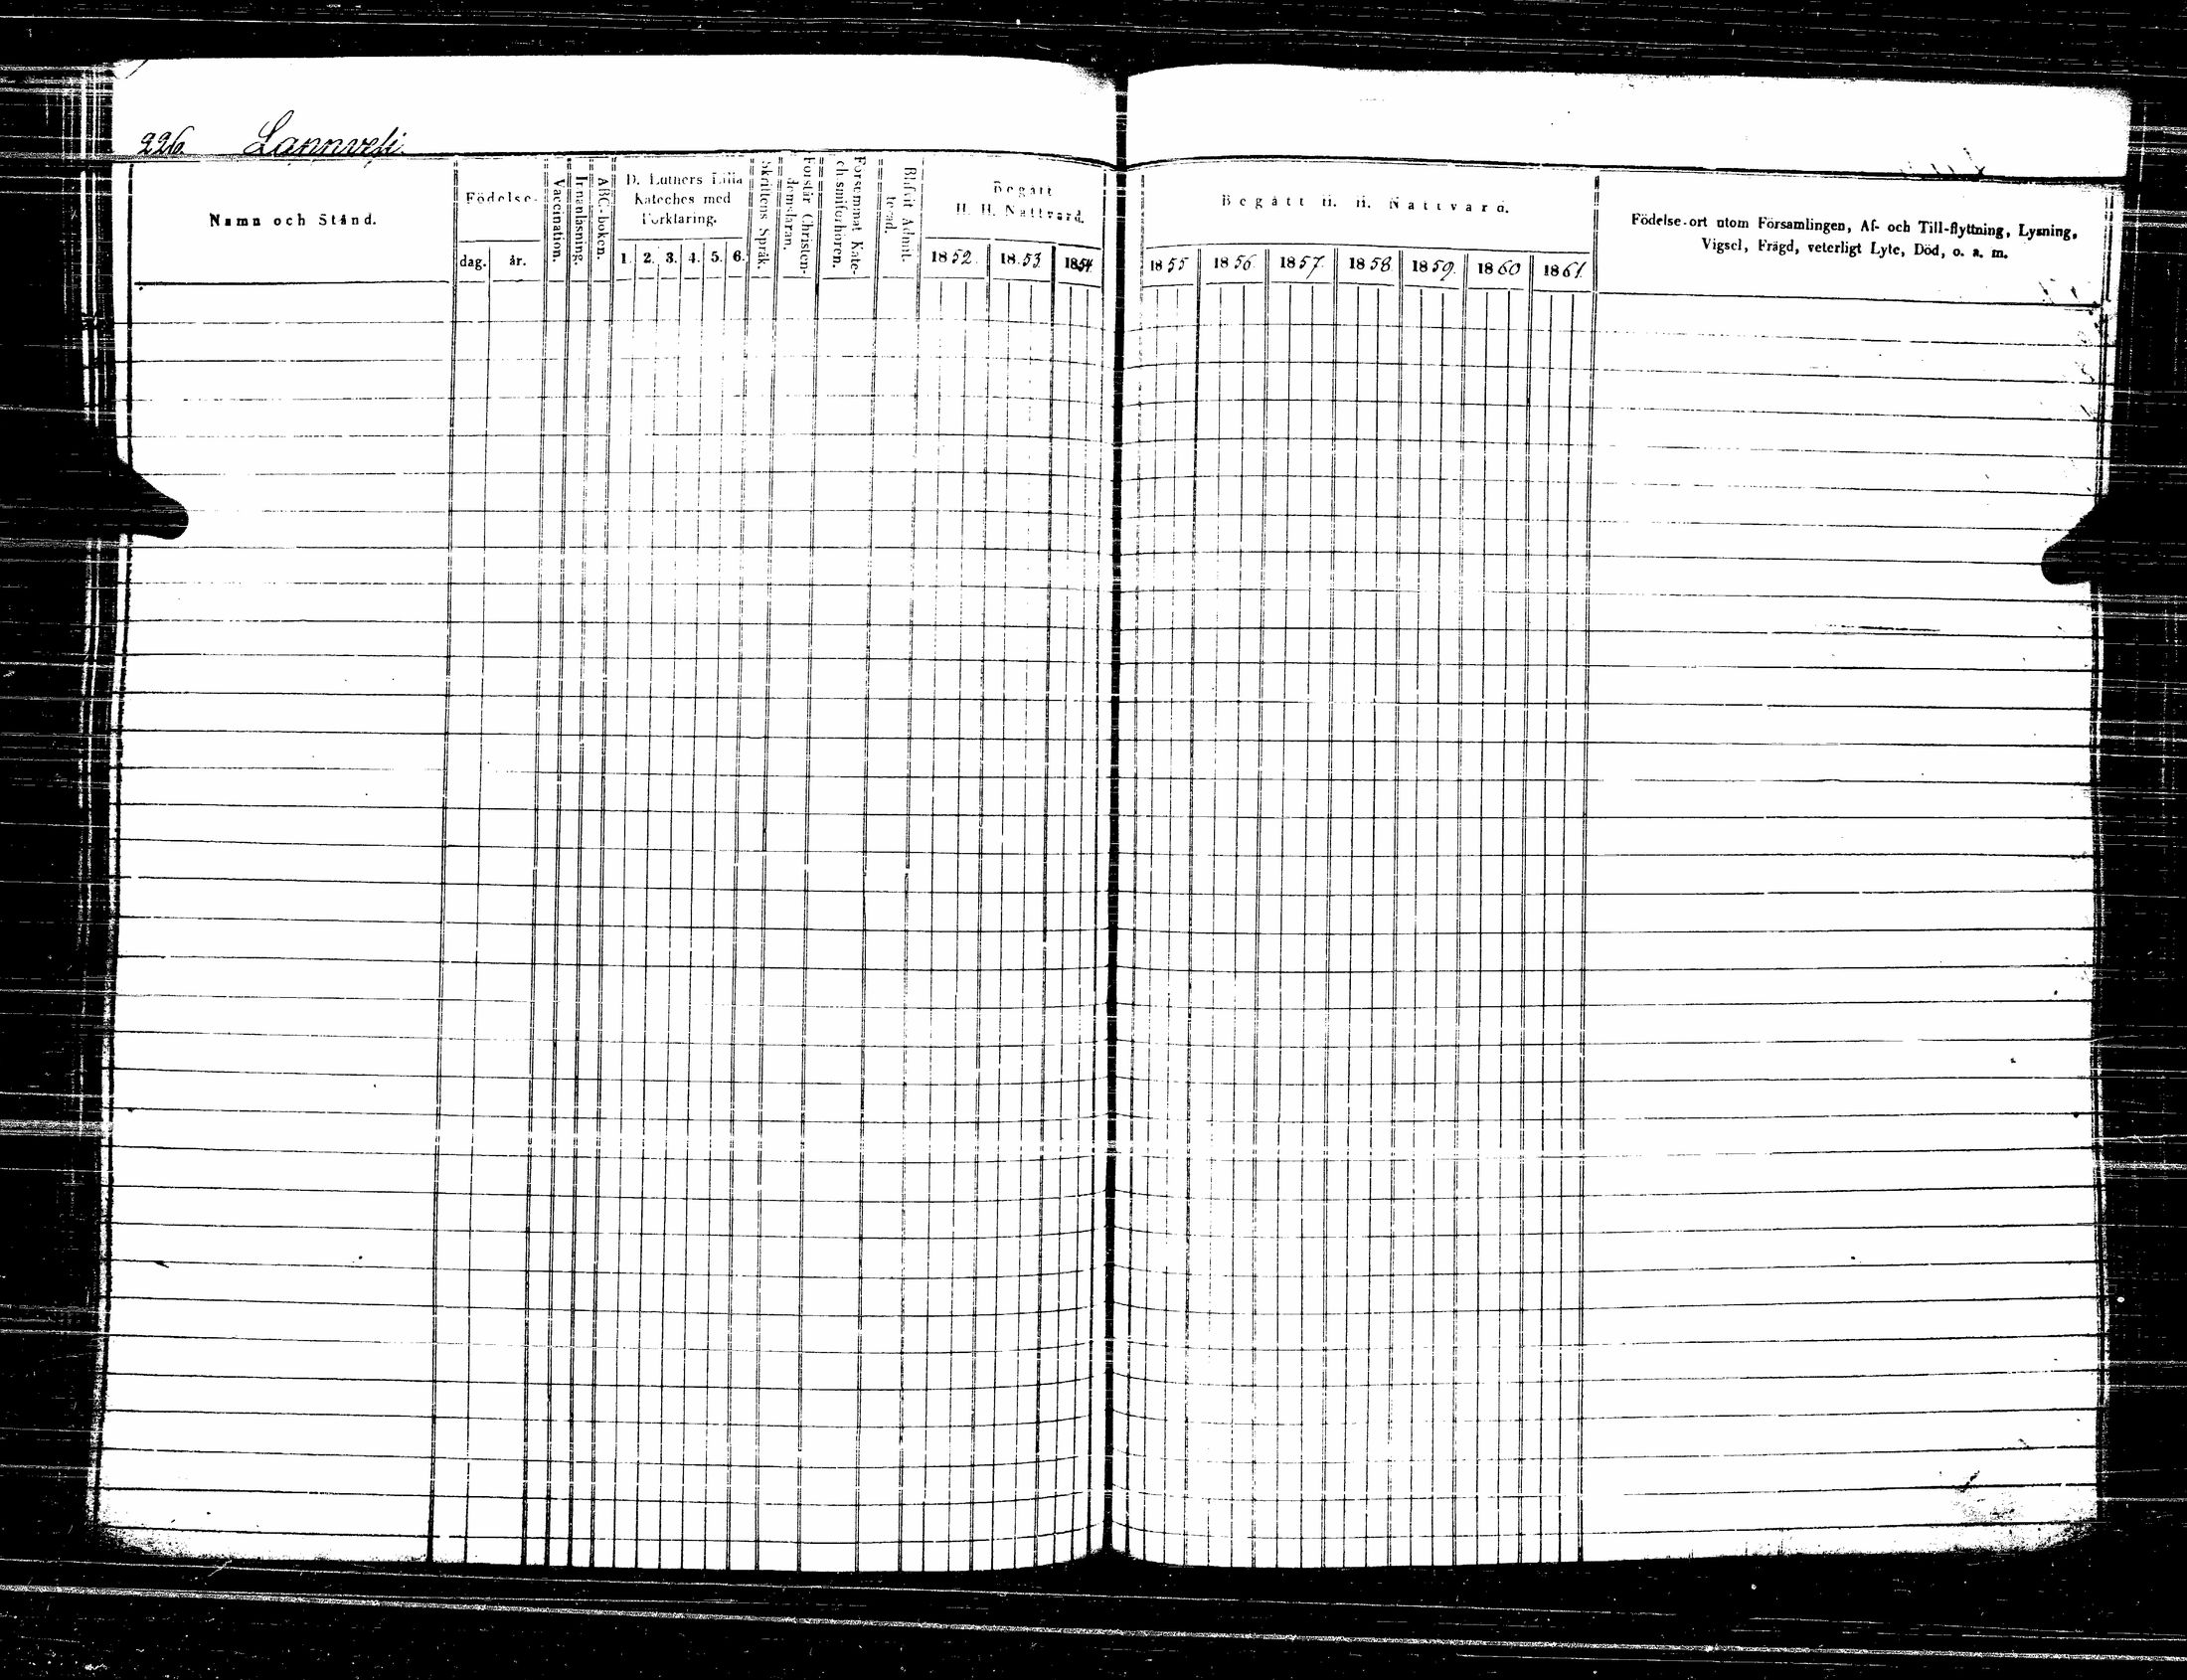 226. Lannvesi.
Namn och Stånd.
Födelse-
dag. år.
Vaccination.
Innanläsning.
ABC-boken.
D. Luthers Lilla
Kateches med
Förklaring.
1. 2. 3. 4. 5. 6.
Skriftens Språk.
Förstår Christen-
domsläran.
Försummat Kate-
chismiförhören.
Blifvit Admit-
terad.
Begått
H. H. Nattvard.
1852. 1853. 1854.
Begått H. H. Nattvard.
1855 1856. 1857. 1858 1859. 1860 1861.
Födelse-ort utom Församlingen, Af- och Till-flyttning, Lysning,
Vigsel, Frägd, veterligt Lyte, Död, o. a. m.